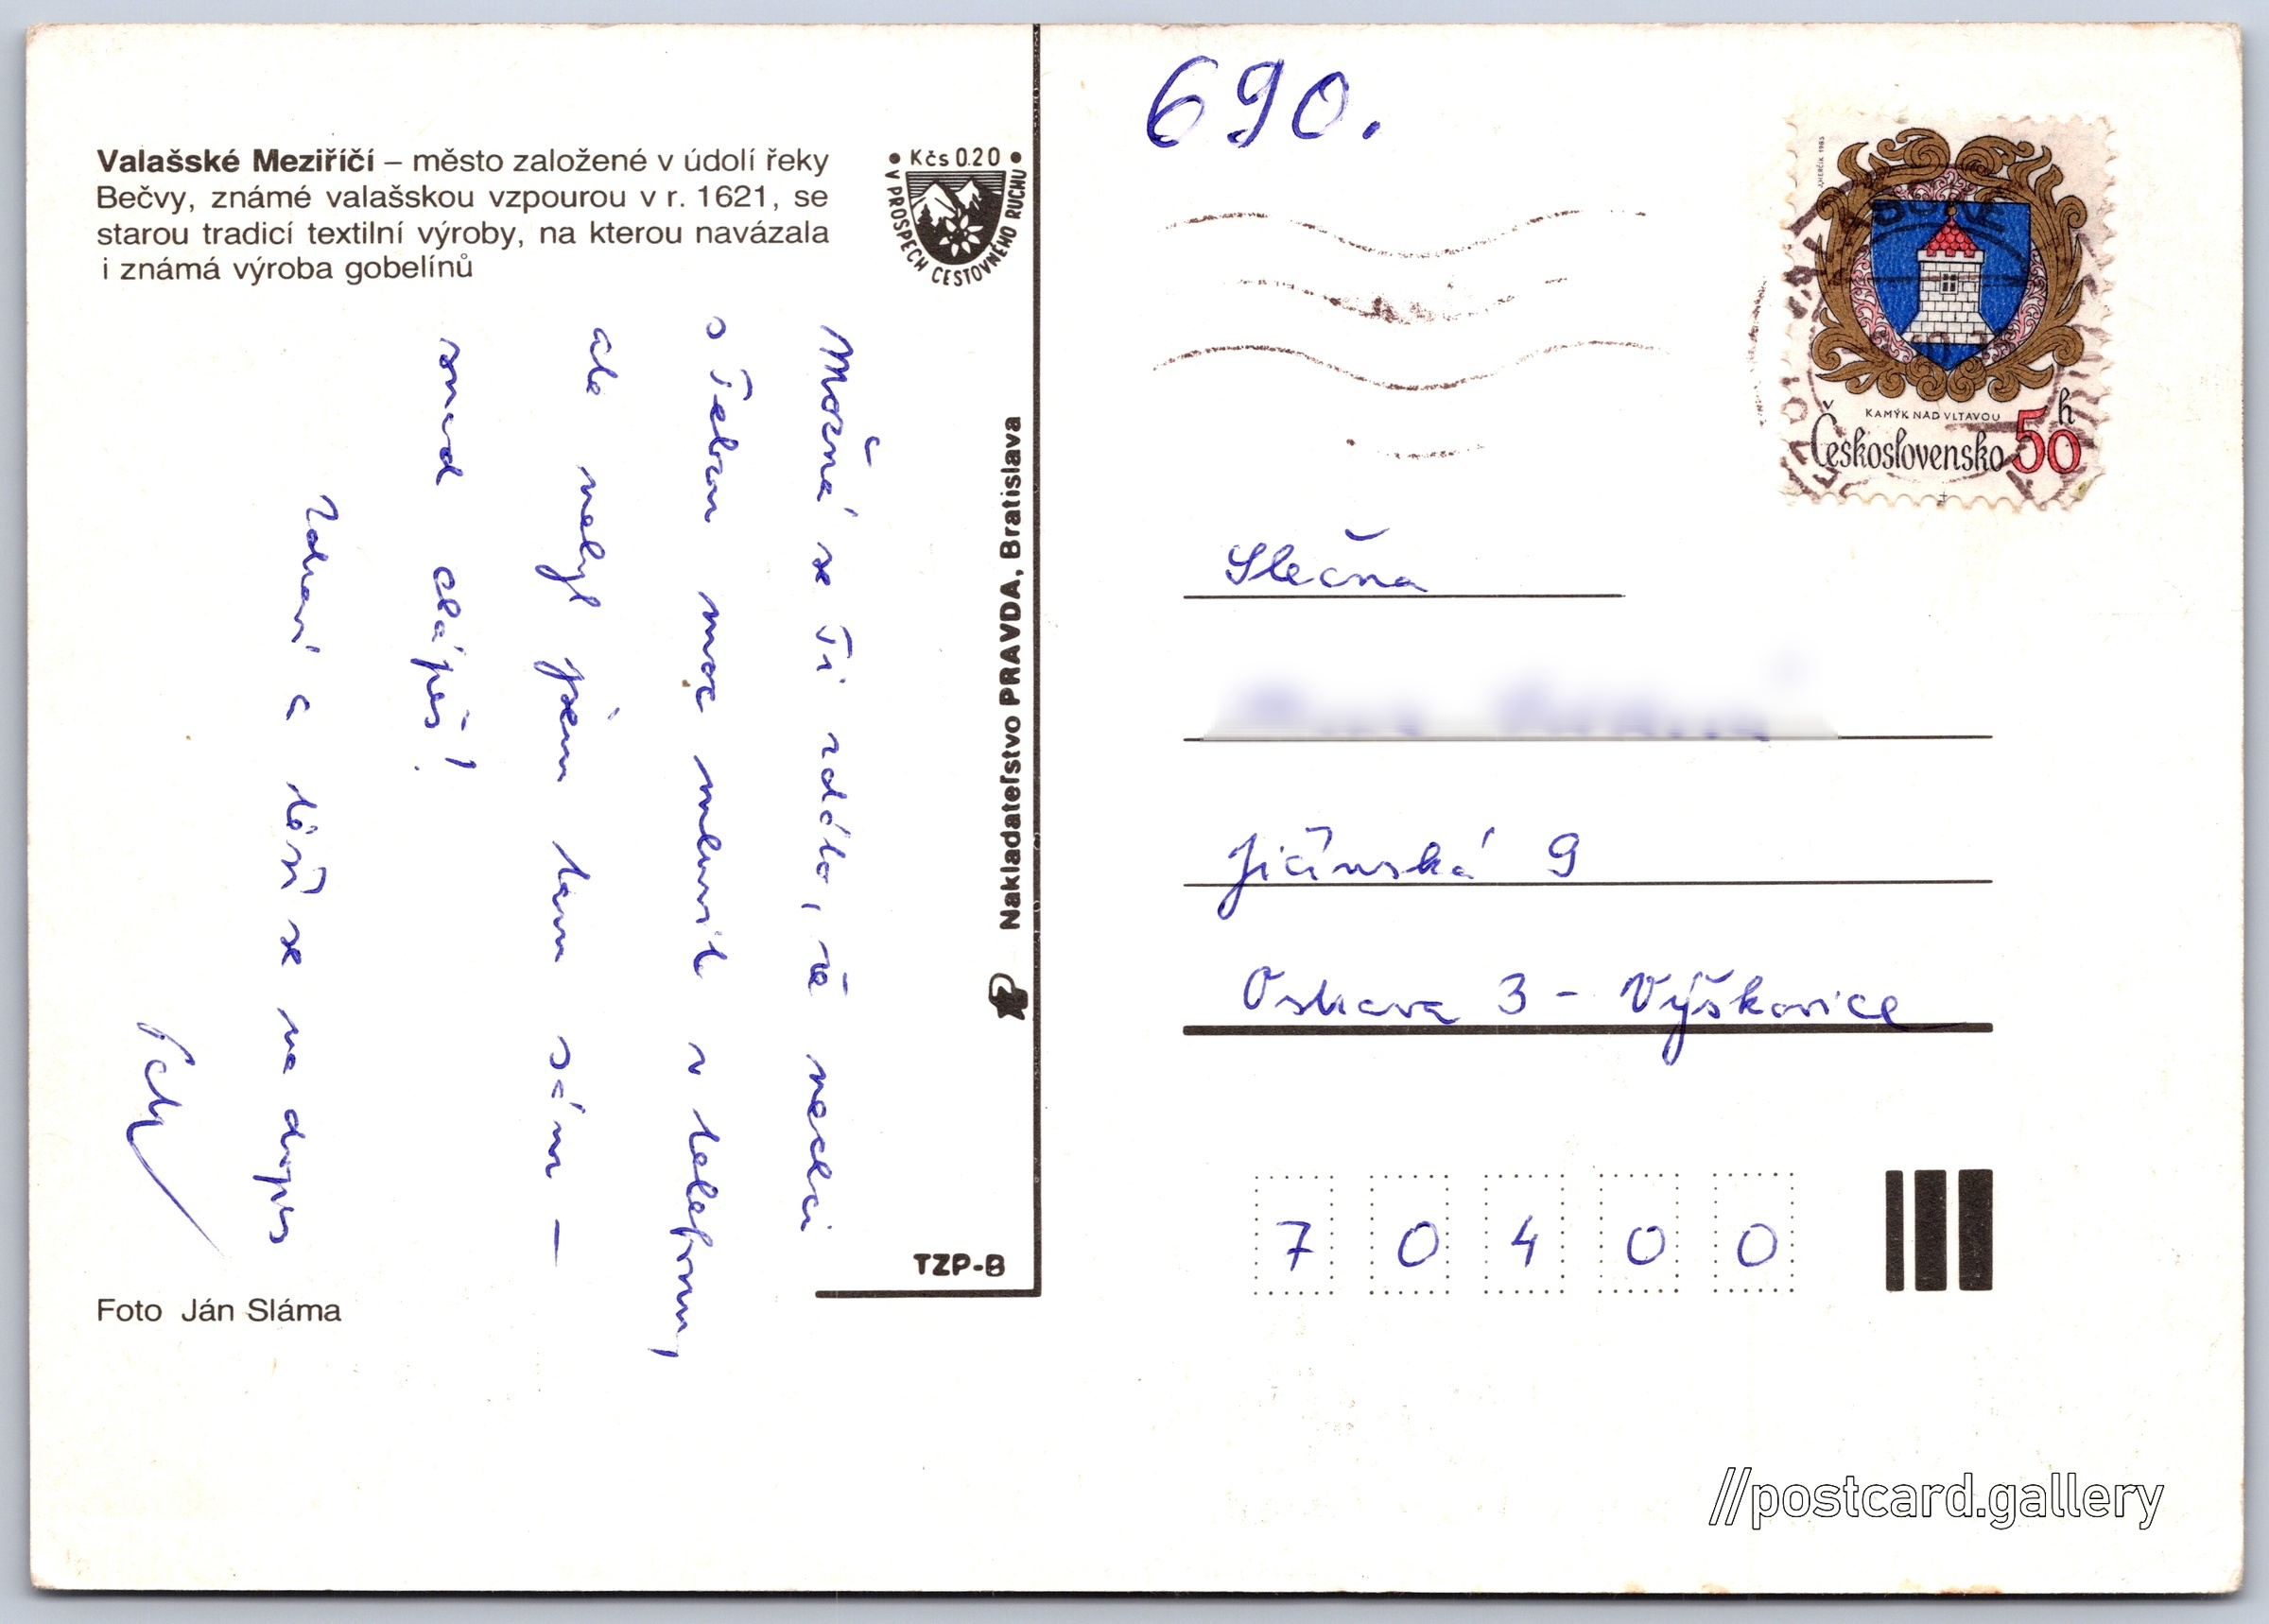 Valašské Meziříčí – město založené v údolí řeky
Bečvy, známé valašskou vzpourou v r. 1621, se
starou tradicí textilní výroby, na kterou navázala
i známá výroba gobelínů
• Kčs 0.20 •
V PROSPECH CESTOVNÉHO RUCHU
Možná se Ti zdálo, že nechci
s Tebou moc mluvit v telefonu,
ale nebyl jsem tam sám –
snad chápeš!
Zdraví a těší se na dopis
Nakladateľstvo PRAVDA, Bratislava
TZP-B
Foto Ján Sláma
690.
KAMÝK NAD VLTAVOU
Československo 50 h
Slečna
Jičínská 9
Ostrava 3 - Výškovice
7 0 4 0 0
//postcard.gallery